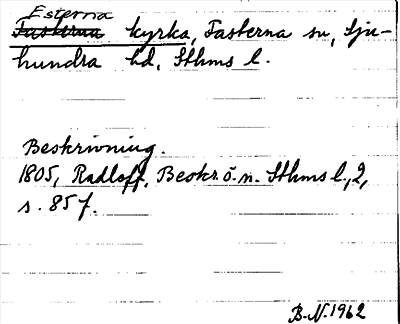 Esterna
Fasterna kyrka, Fasterna sn, Sju-
hundra hd, Sthms l.
Beskrivning.
1805, Radloff, Beskr. ö. n. Sthms l., 2,
s. 85 f.
B.N. 1962